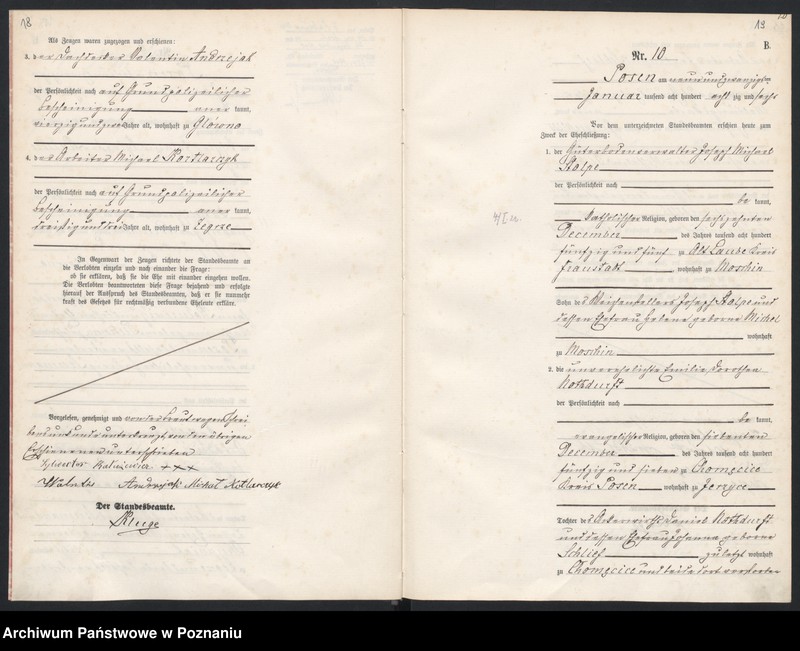 18
Als Zeugen waren zugezogen und erschienen:
3. der Dachdecker Valentin Andrzejak
der Persönlichkeit nach auf Grund polizeilicher
Bescheinigung anerkannt,
vierzig und zwei Jahre alt, wohnhaft zu Glówno
4. der Arbeiter Michael Kotlarczyk
der Persönlichkeit nach auf Grund polizeilicher
Bescheinigung anerkannt,
dreißig und drei Jahre alt, wohnhaft zu Zegrze
In Gegenwart der Zeugen richtete der Standesbeamte an
die Verlobten einzeln und nach einander die Frage:
ob sie erklären, daß sie die Ehe mit einander eingehen wollen.
Die Verlobten beantworteten diese Frage bejahend und erfolgte
hierauf der Ausspruch des Standesbeamten, daß er sie nunmehr
kraft des Gesetzes für rechtmäßig verbundene Eheleute erkläre.
Vorgelesen, genehmigt und von der Braut wegen Schrei
bensunkunde unterkreuzt, von den übrigen
Erschienenen unterschrieben
Sylvester +++
Andrzejak Michał Kotlarczyk
Der Standesbeamte.
Kluge
19
B.
Nr. 10
Posen am neunundzwanzigsten
Januar tausend acht hundert achtzig und sechs
Vor dem unterzeichneten Standesbeamten erschien heute zum
Zweck der Eheschließung:
1. der Güterbodenverwalter Joseph Michael
Stolpe
der Persönlichkeit nach
bekannt,
katholischer Religion, geboren den sechzehnten
December des Jahres tausend acht hundert
fünfzig und fünf zu Alt Laube Kreis
Fraustadt, wohnhaft zu Moschin
Sohn des Weichenstellers Joseph Stolpe und
dessen Ehefrau Helene geborne Michel
wohnhaft
zu Moschin
2. die unverehelichte Emilie Dorothea
Nothdurft
der Persönlichkeit nach
bekannt,
evangelischer Religion, geboren den siebenten
December des Jahres tausend acht hundert
fünfzig und sieben zu Chomęcice
Kreis Posen, wohnhaft zu Jerzyce
Tochter des Ackerwirths Daniel Nothdurft
und dessen Ehefrau Johanna geborne
Schlief zuletzt wohnhaft
zu Chomęcice und beide dort verstorben
Archiwum Państwowe w Poznaniu